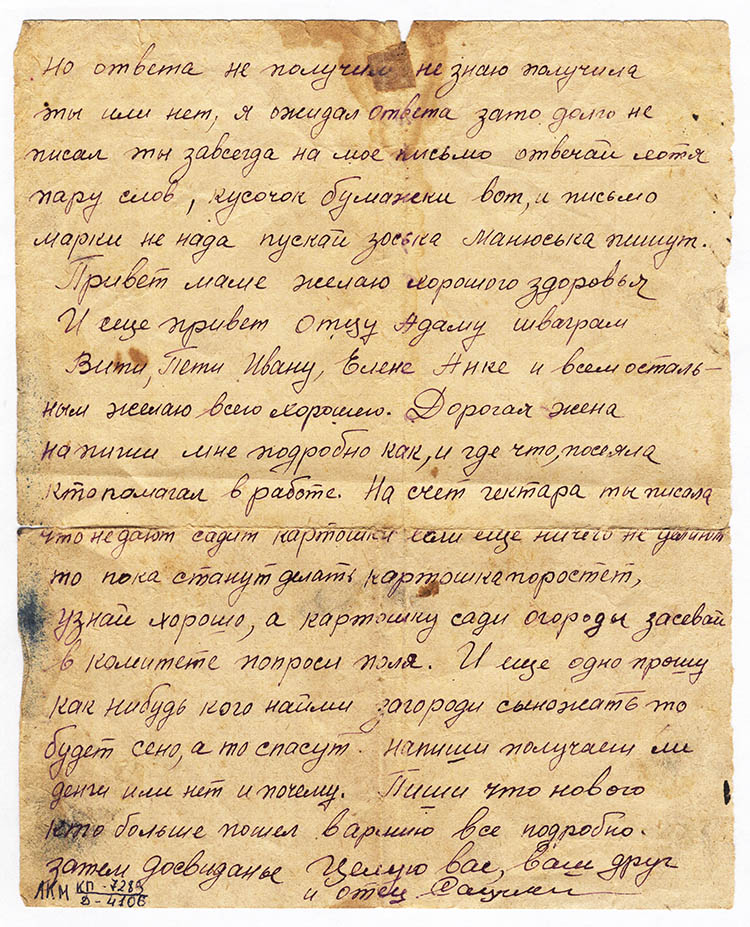 но ответа не получил не знаю получила
ты или нет, я ожидал ответа зато долго не
писал ты завсегда на мое письмо отвечай хотя
пару слов, кусочок бумажки вот, и письмо
марки не нада пускай зоська манюська пишут.
Привет маме желаю хорошого здоровья
И еще привет отцу Адаму шваграм
Вити, Пети Ивану, Елене Анке и всем осталь-
ным желаю всего хорошего. Дорогая жена
напиши мне подробно как, и где что, посеяла
кто помагал в работе. На счет гектара ты писала
что не дают садит картошки если еще ничего не
то пока станут делать картошка поростет,
узнай хорошо, а картошку сади огороды засевай
в комитете попроси поля. И еще одно прошу
как нибудь кого найми загороди сыножать то
будет сено, а то спасут. напиши получаеш ли
денги или нет и почему. Пиши что нового
кто больше пошел в армию все подробно.
затем досвиданье Целую вас, Ваш друг
и отец
ЛКМ КП-7289
Д-4106